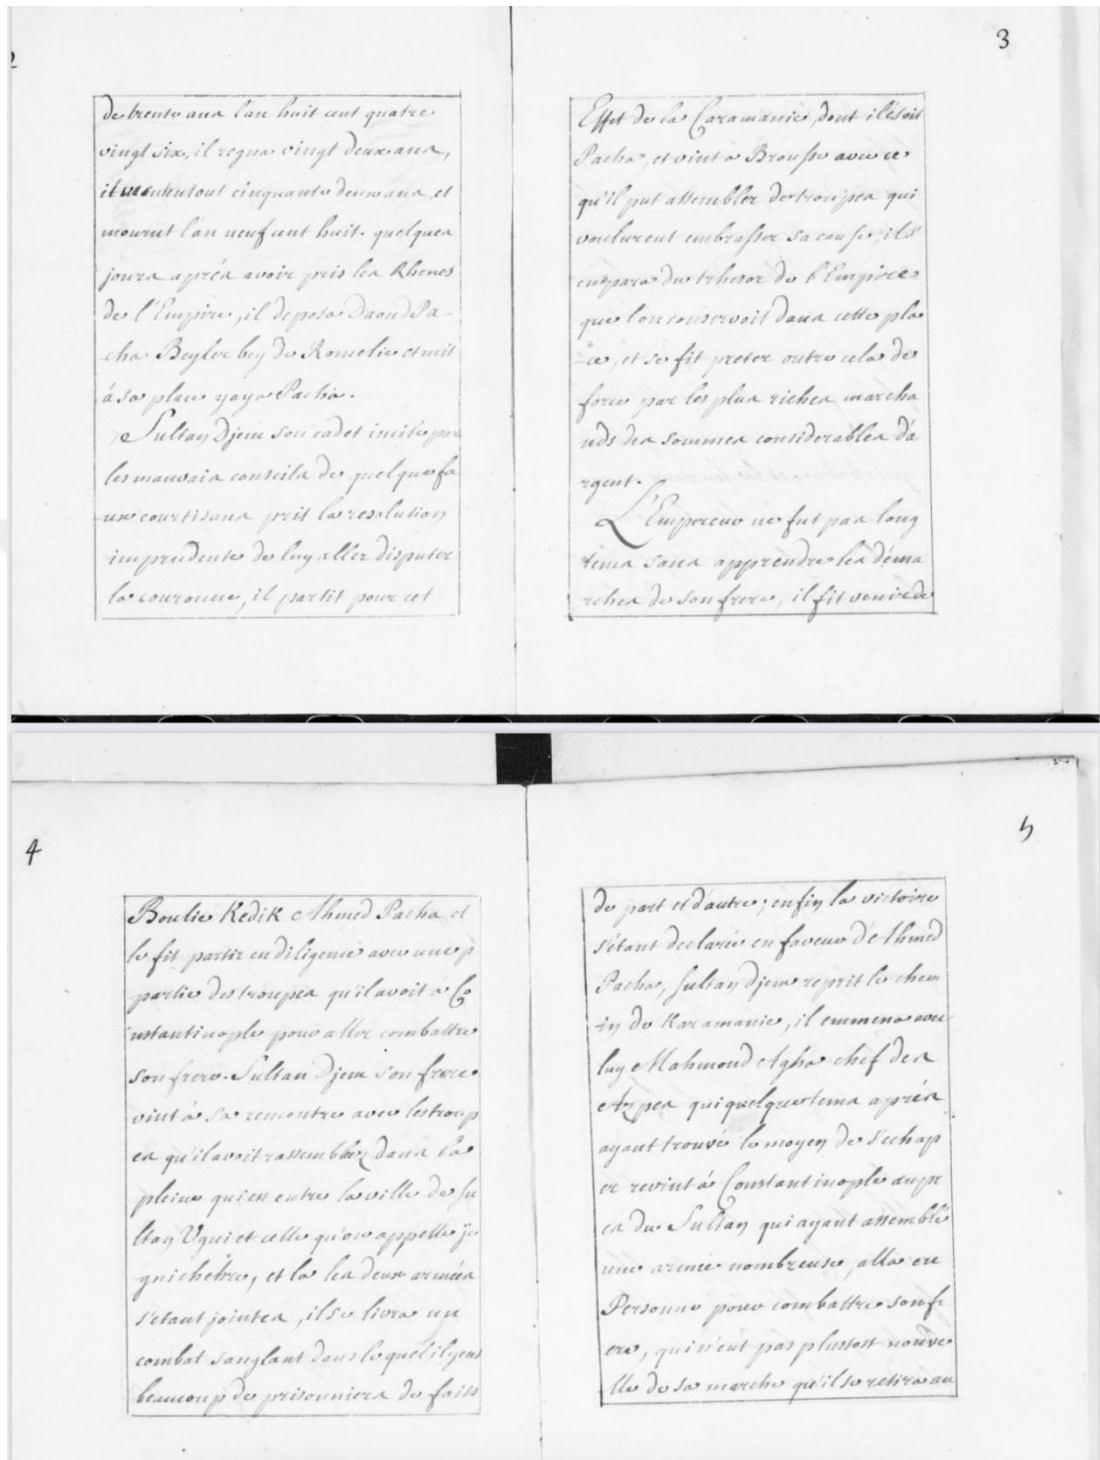 2
de trente ans l'an huit cent quatre
vingt six, il regna vingt deux ans,
il vecut en tout cinquante deux ans, et
mourut l'an neuf cent huit. quelques
jours aprés avoir pris les Rhenes
de l'Empire, il deposa Daoud Pa-
cha Beyler bey de Romelie et mit
á sa place yaya Pacha.
Sultan Djem son cadet incité par
les mauvais conseils de quelques fa
ux courtisans prit la resolution
imprudente de luy aller disputer
la couronne, il partit pour cet
3
Effet de la Caramanie, dont il étoit
Pacha, et vint a Brousse avec ce
qu'il put assembler de troupes qui
voulurent embrasser sa cause; il s'
empara du trhesor de l'Empire
que l'on conservoit dans cette pla
-ce, et se fit preter outre cela de
force par les plus riches marcha
nds des sommes considerables d'a
rgent.
L'Empereur ne fut pas long
tems sans apprendre les déma
rches de son frere, il fit venir de
4
Boulie Kedik Ahmed Pacha et
le fit partir en diligence avec une p
partie des troupes qu'il avoit á Co
nstantinople pour aller combattre
son frere. Sultan Djem son frere
vint á sa rencontre avec les troup
es qu'il avoit rassemblez dans la
pleine qui est entre la ville de Su
ltan Ugni et celle qu'on appelle je
gnichéhre, et la les deux armées
s'etant jointes, il se livra un
combat sanglant dans lequel il y eut
beaucoup de prisonniers de faits
5
de part et d'autre; enfin la victoire
s'étant declarée en faveur d'Ahmed
Pacha, Sultan Djem reprit le chem
in de Karamanie, il emmena avec
luy Mahmoud Agha chef des
Azpes qui quelque tems aprés
ayant trouvé le moyen de s'echap
er revint á Constantinople aupr
es du Sultan qui ayant assemblé
une armée nombreuse, alla en
Personne pour combattre son fr
ere, qui n'eut pas plustost nouve
lle de sa marche qu'il se retira au